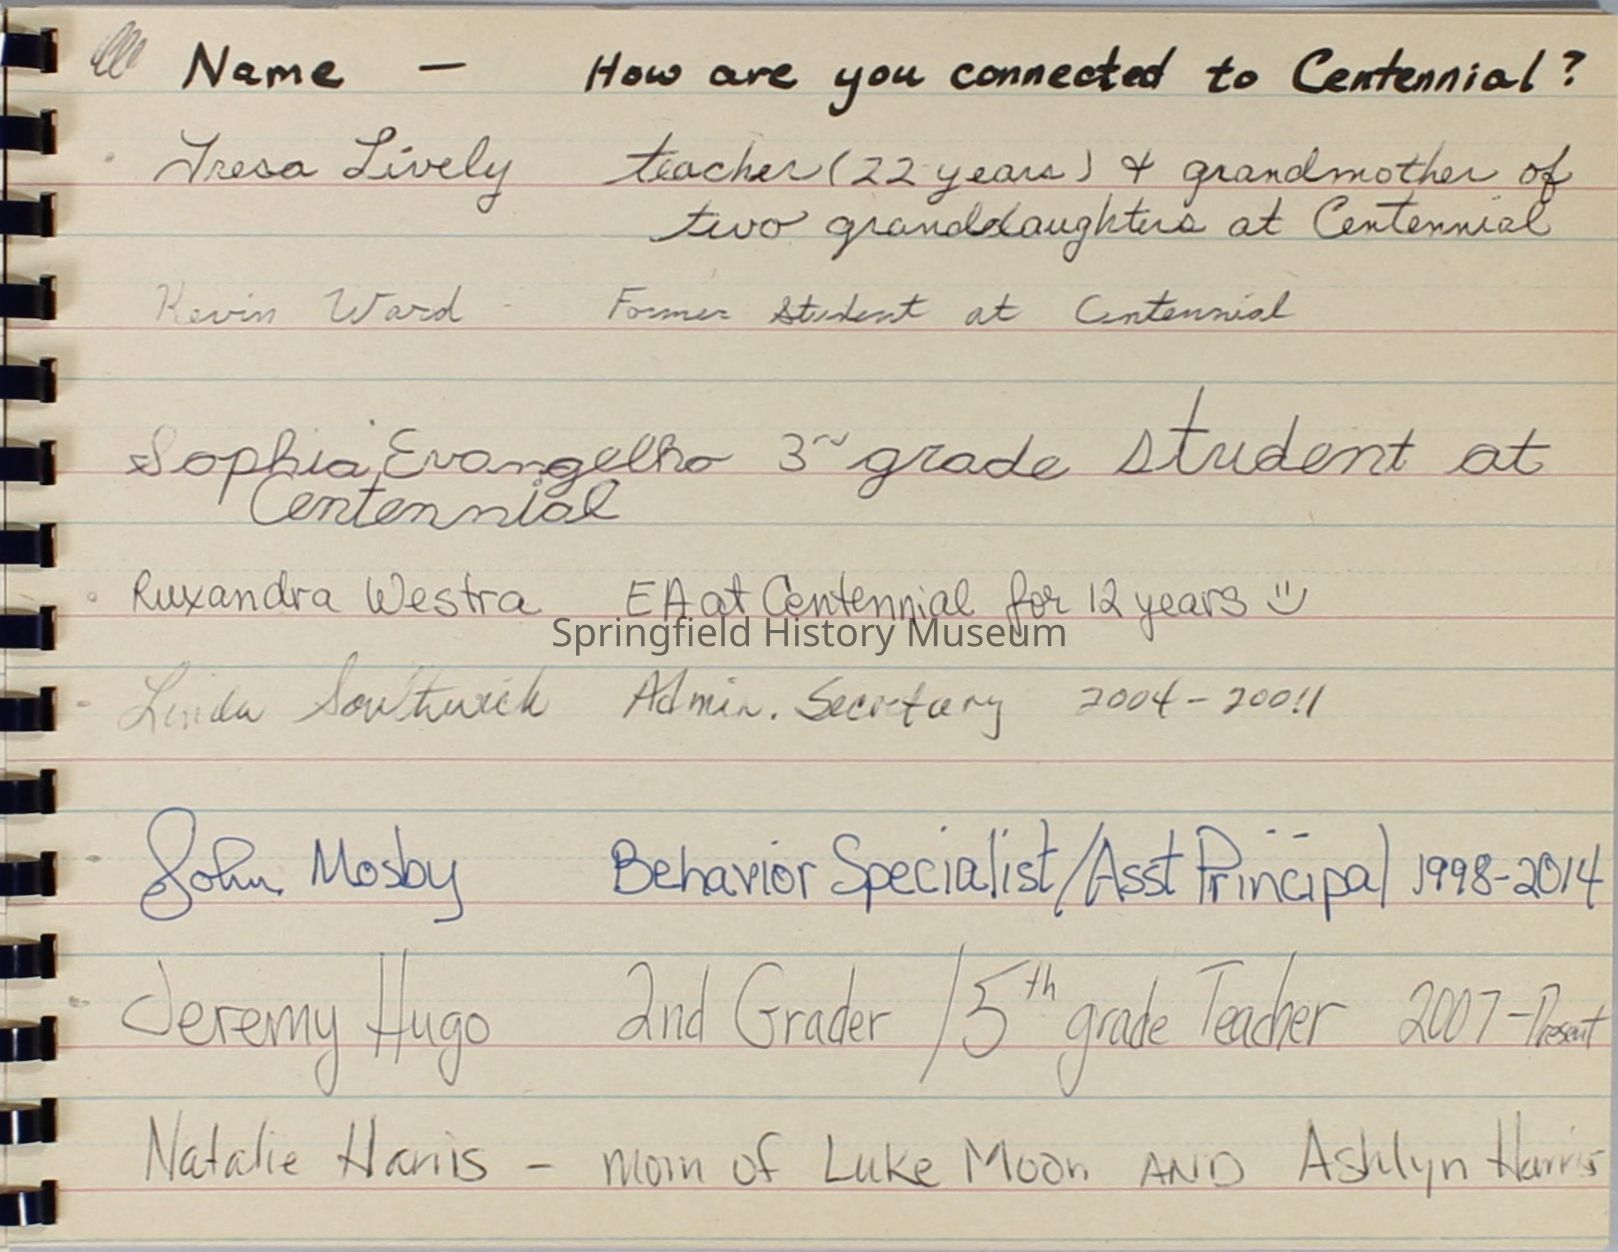 Name - How are you connected to Centennial?
Tresa Lively teacher (22 years) & grandmother of
two granddaughters at Centennial
Kevin Ward - Former student at Centennial
Sophia Evangelho 3rd grade student at
Centennial
Ruxandra Westra EA at Centennial for 12 years
Springfield History Museum
Linda Southwick Admin. Secretary 2004-20011
John Mosby Behavior Specialist/Asst Principal 1998-2014
Jeremy Hugo 2nd Grader / 5th grade Teacher 2007-Present
Natalie Harris - mom of Luke Moon AND Ashlyn Harris